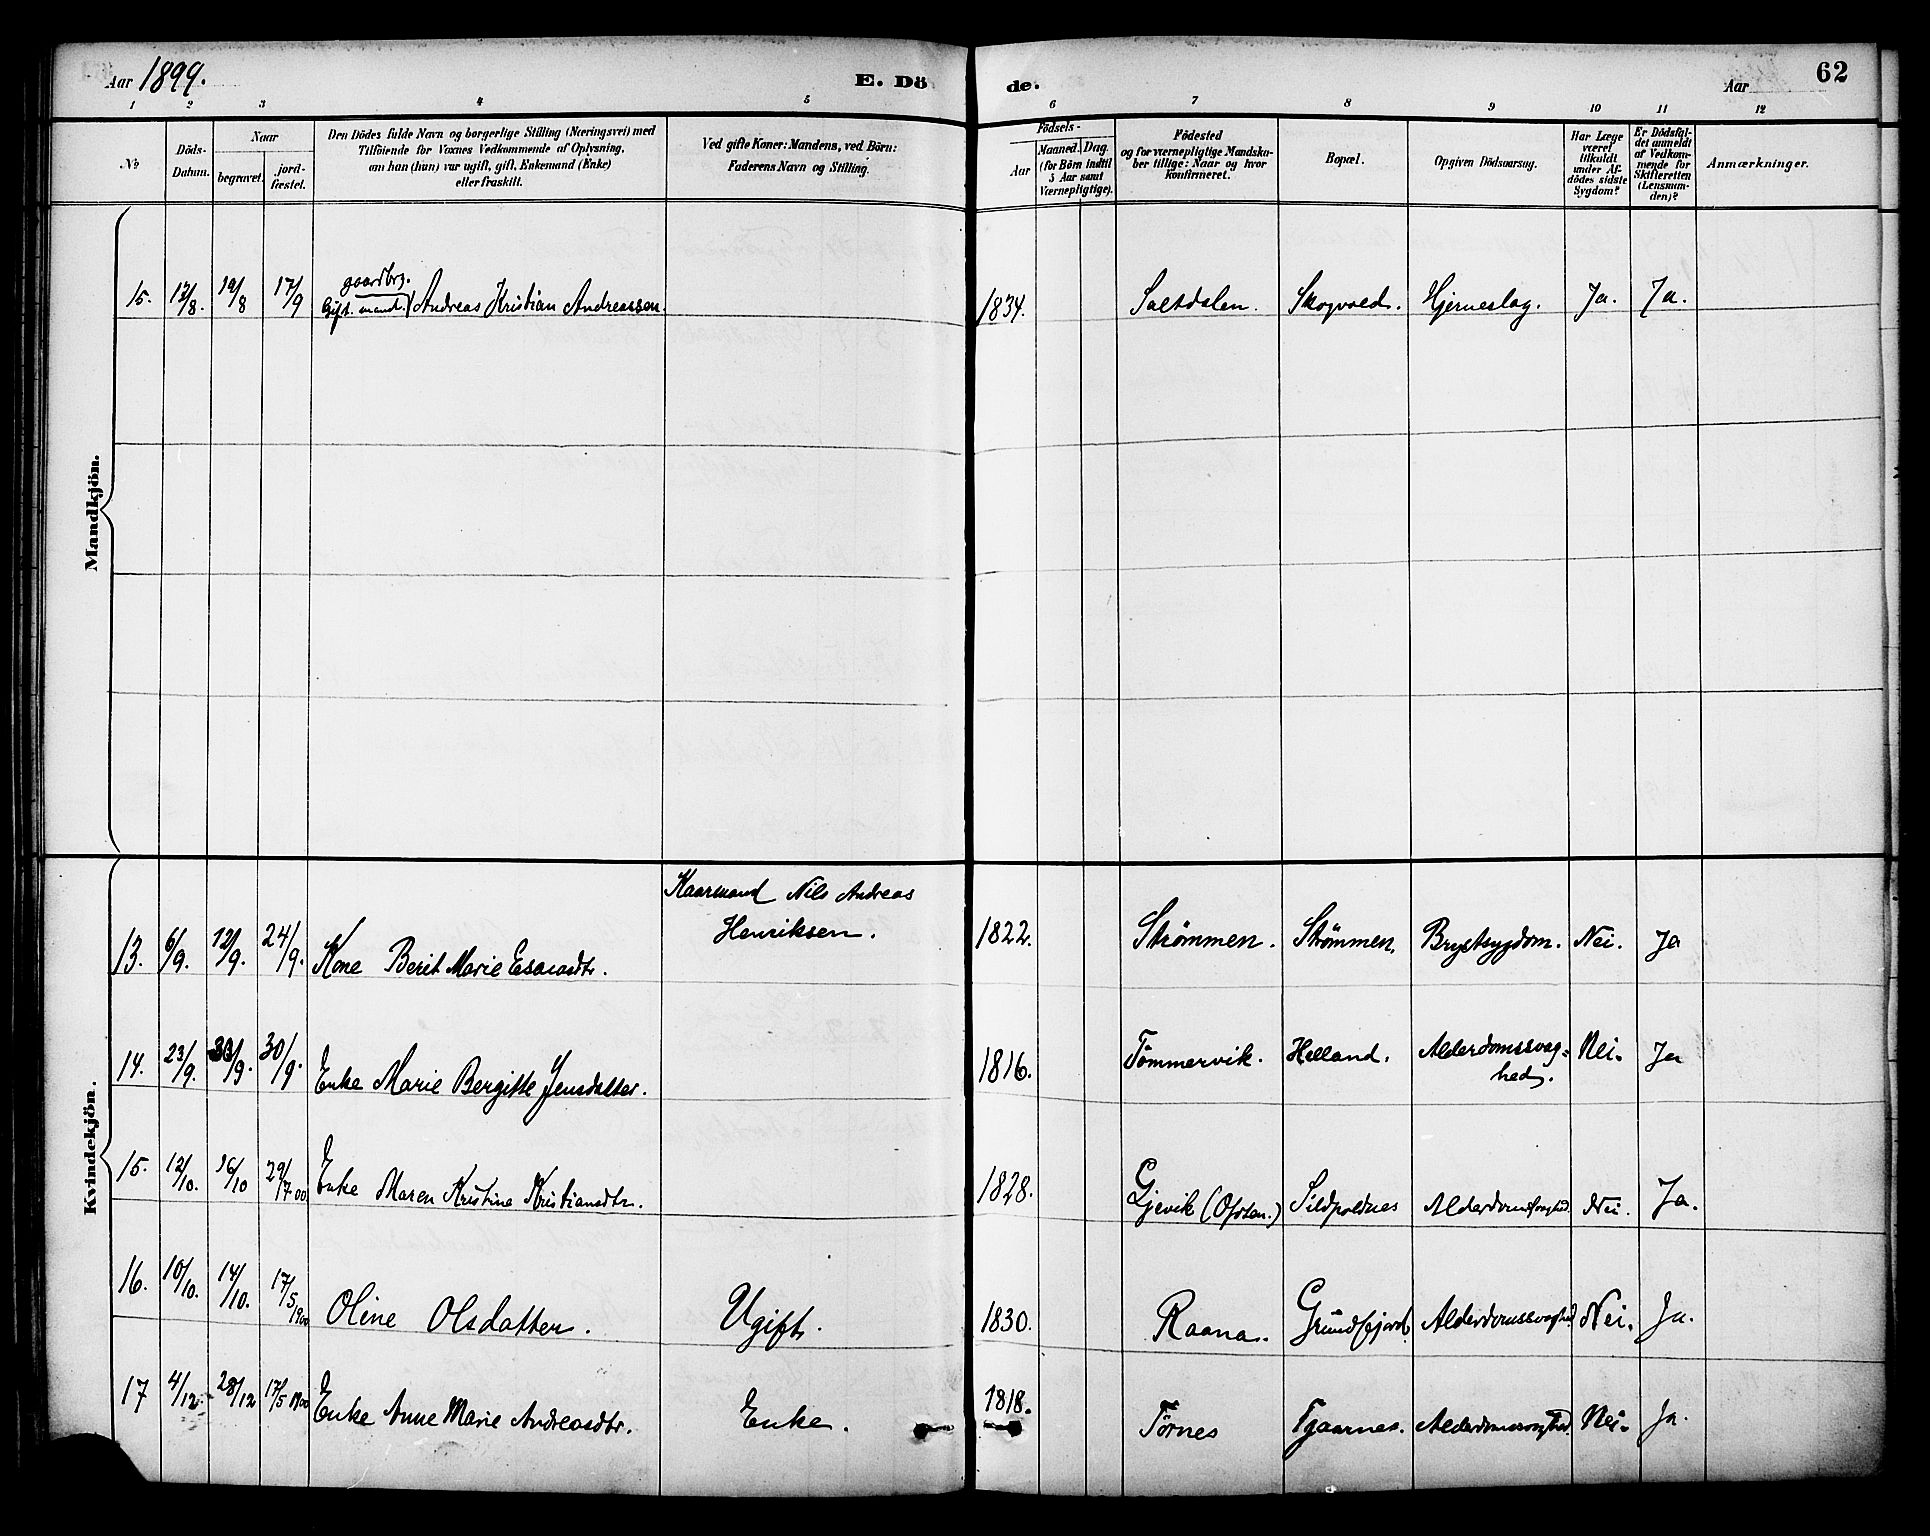 Aar 1899.
E. Dö
de.
Aar
62
1 2 3 4 5
6 7 8 9 10 11 12
No
Döds-
Datum.
Naar
begravet.
jord-
fæstet.
Den Dödes fulde Navn og borgerlige Stilling (Næringsvei) med
Tilföiende for Voxnes Vedkommende af Oplysning,
om han (hun) var ugift, gift, Enkemand (Enke)
eller fraskilt.
Ved gifte Koner: Mandens, ved Börn:
Faderens Navn og Stilling.
Födsels-
Aar
Maaned. Dag.
(for Börn indtil
5 Aar samt
Værnepligtige).
Födested
og for værnepligtige Mandska-
ber tillige: Naar og hvor
konfirmeret.
Bopæl.
Opgiven Dödsaarsag.
Har Læge
været
tilkaldt
under Af-
dödes sidste
Sygdom?
Er Dödsfal-
det anmeldt
af Vedkom-
mende for
Skifteretten
(Lensman-
den)?
Anmærkninger.
Mandkjön.
gaardbrg.
15. 12/8. 19/8 17/9 Gift. mand. Andreas Kristian Andreassen. 1834. Saltdalen. Skogvold. Hjerneslag. Ja. Ja.
Kvindekjön.
Kaarmand Nils Andreas
Henriksen.
13. 6/9. 12/9. 24/9. Kone Berit Marie Esaiasdtr. 1822. Strømmen. Strømmen. Brystsygdom. Nei. Ja
14. 23/9. 30/9. 30/9. Enke Marie Bergitte Jensdatter. 1816. Tømmervik. Helland. Alderdomssvag=
hed. Nei. Ja
15. 12/10. 16/10 29/7 00 Enke Maren Kristine Kristiansdtr. 1828. Gjevik (Ofoten.) Sildpoldnes Alderdomssvaghed. Nei. Ja.
16. 10/10. 14/10. 17/5 1900 Oline Olsdatter. Ugift. 1830. Raana. Grundfjord. Alderdomssvaghed Nei. Ja.
17 4/12. 28/12 17/5 1900 Enke Anne Marie Andreasdtr. Enke. 1818. Tørnes Tjaarnes. Alderdomssvaghed. Nei. Ja.